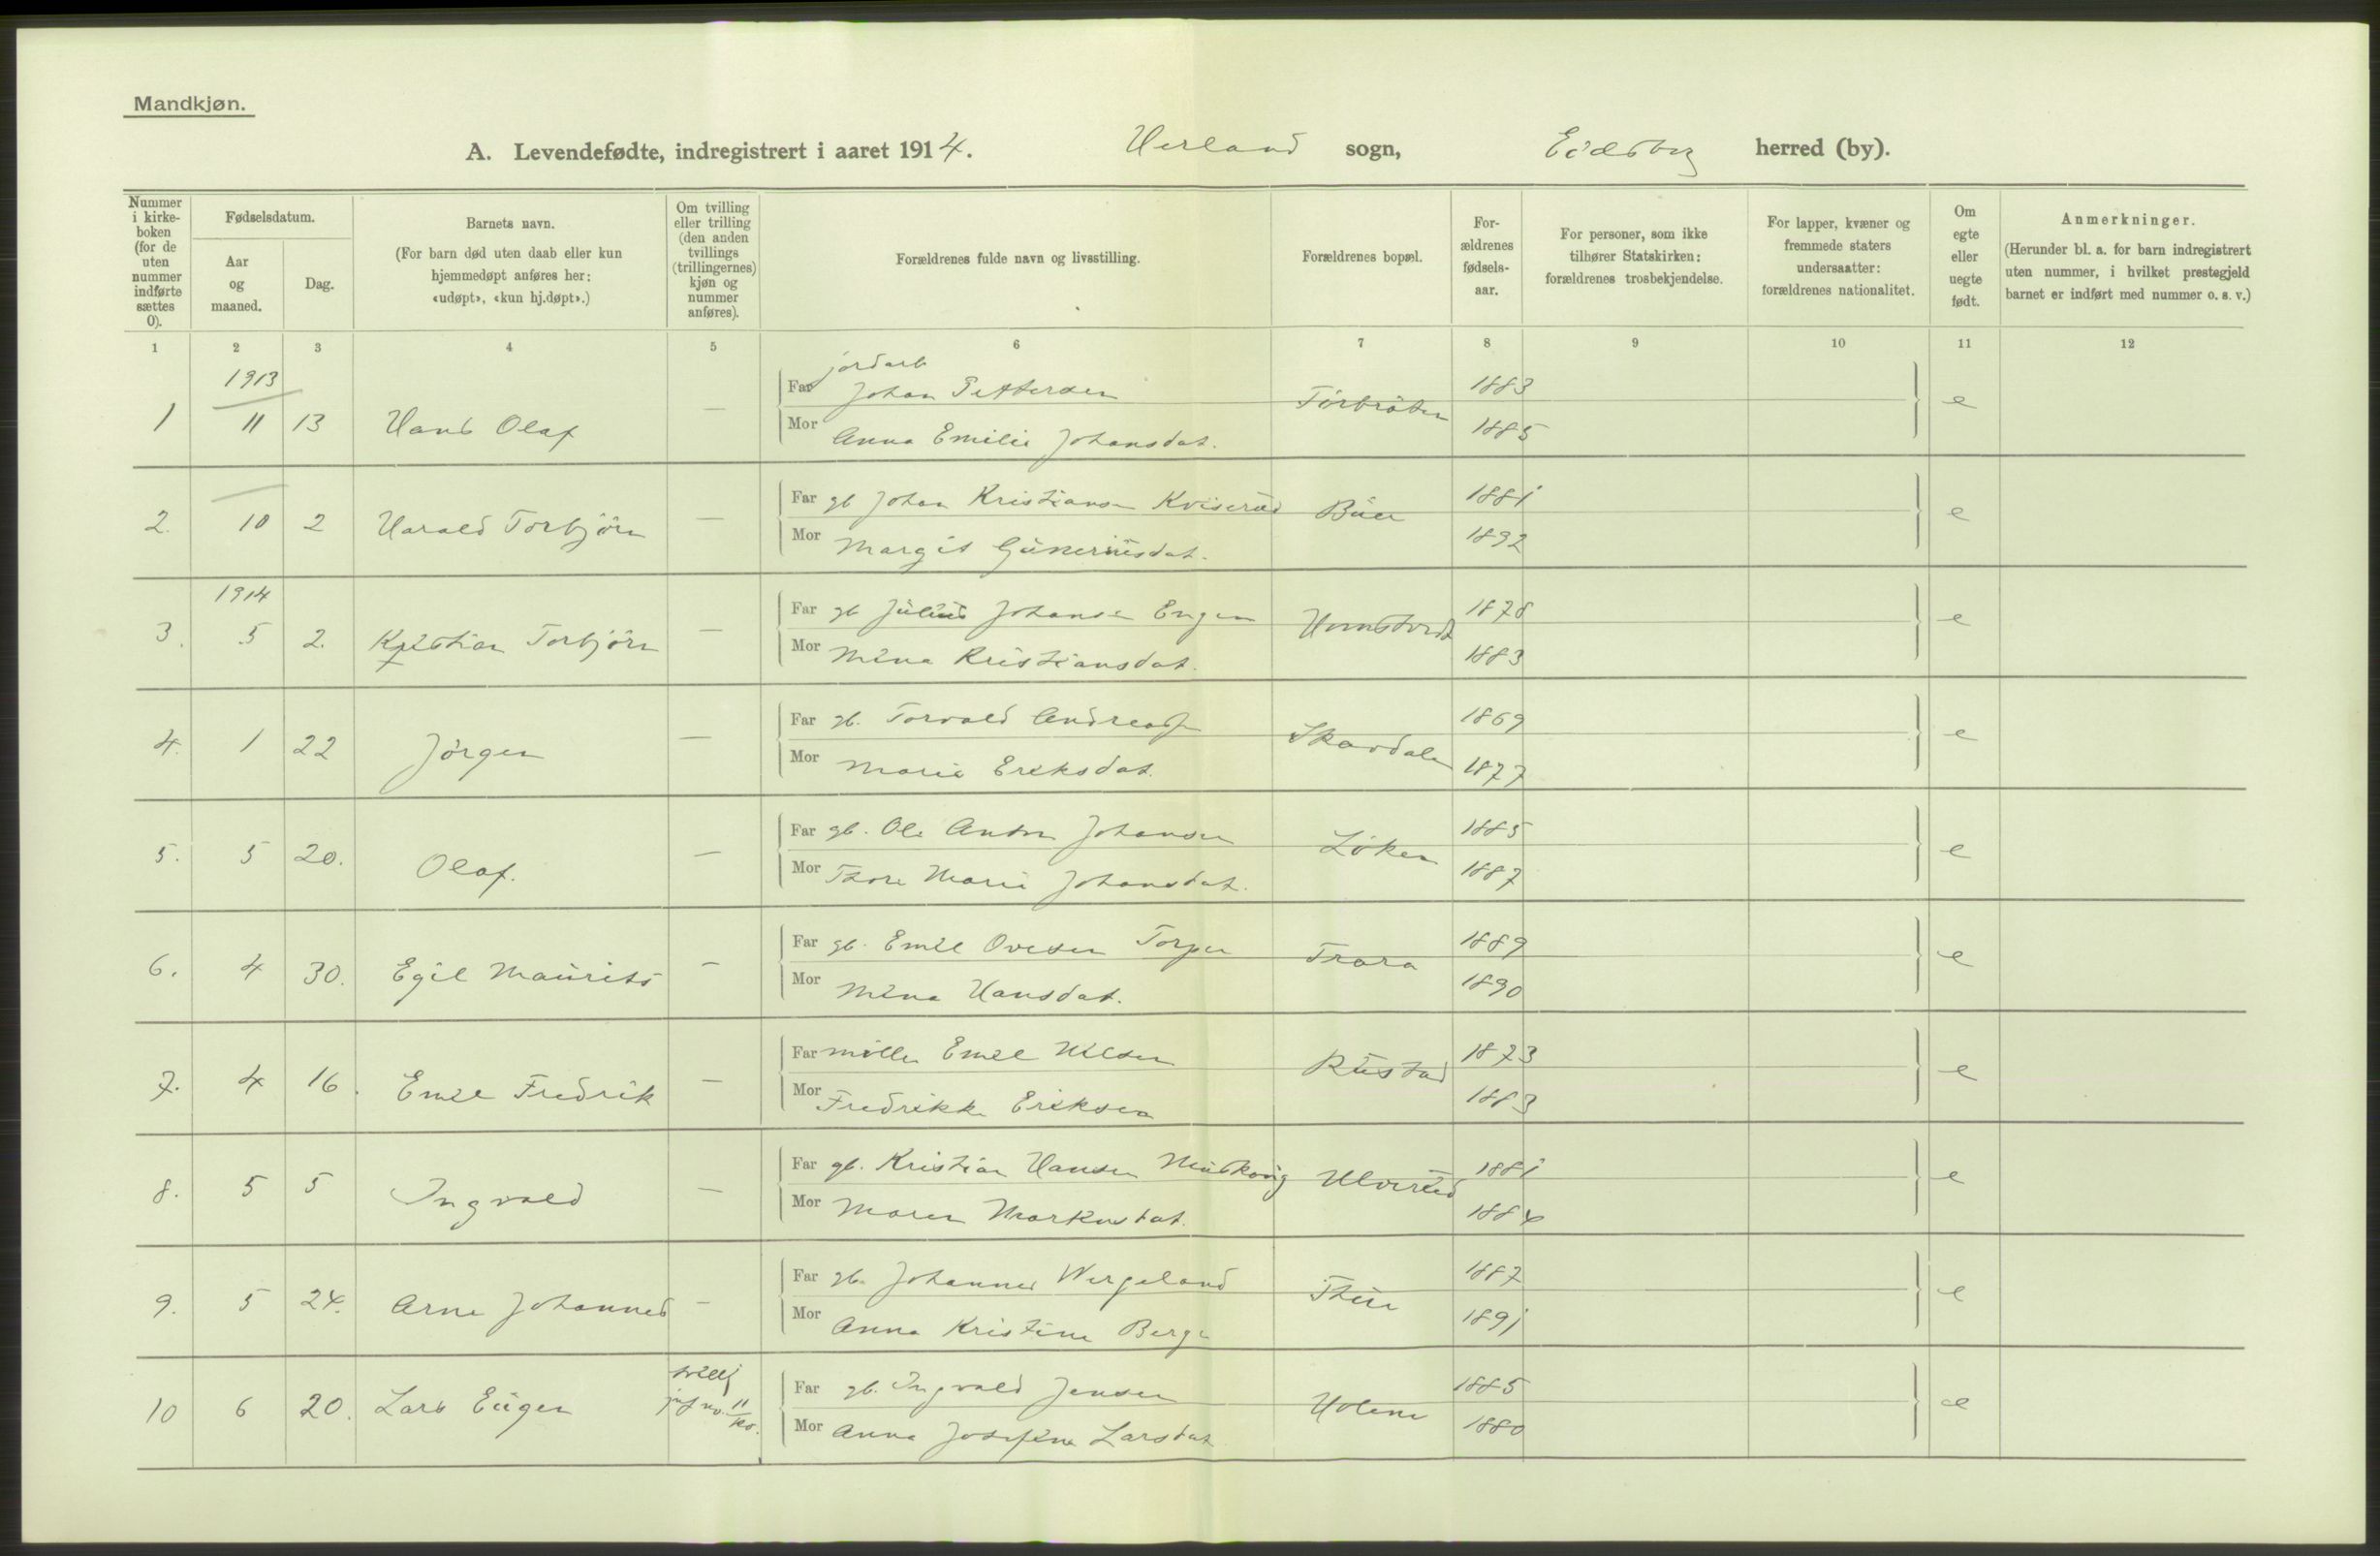 Mandkjøn.
A. Levendefødte, indregistrert i aaret 1914. Herland sogn, Eidsberg herred (by).
Nummer i kirke-boken (for de uten nummer indførte sættes 0).
Fødselsdatum.
Aar og maaned.
Dag.
Barnets navn.
(For barn død uten daab eller kun hjemmedøpt anføres her: «udøpt», «kun hj.døpt».)
Om tvilling eller trilling (den anden tvillings (trillingernes) kjøn og nummer anføres).
Forældrenes fulde navn og livsstilling.
Forældrenes bopæl.
For-ældrenes fødsels-aar.
For personer, som ikke tilhører Statskirken: forældrenes trosbekjendelse.
For lapper, kvæner og fremmede staters undersaatter: forældrenes nationalitet.
Om egte eller uegte født.
Anmerkninger.
(Herunder bl. a. for barn indregistrert uten nummer, i hvilket prestegjeld barnet er indført med nummer o. s. v.)
1 2 3 4 5 6 7 8 9 10 11 12
1913
jordarb
1 11 13 Hans Olaf — Far Johan Pettersen 1883 e
Mor Anna Emilie Johansdat. 1885
2. 10 2 Harald Torbjörn — Far gb Johan Kristiansen Kviseröd Büer 1881 e
Mor Margit Güneriüsdat. 1892
1914
3. 5 2. Kristian Torbjörn — Far gb Jüliüs Johansen Engen 1878 e
Mor Mina Kristiansdat. 1883
4. 1 22 Jörgen — Far gb. Torvald Andreass Skavdalen 1869 e
Mor Marie Eriksdat. 1877
5. 5 20. Olaf. — Far gb. Ole Anton Johansen Löken 1885 e
Mor Thora Marie Johansdat. 1887
6. 4 30. Egil Maürits — Far gb. Emil Ovesen Torper Trara 1889 e
Mor Mina Hansdat. 1890
7. 4 16. Emil Fredrik — Far möller Emil Nilsen Rüstad 1873 e
Mor Fredrikke Eriksen 1883
8. 5 5 Ingvald — Far gb. Kristian Hansen 1881 e
Mor Maren Markusdat. 1884
9. 5 24. Arne Johannes — Far gb. Johannes Wergeland 1887 e
Mor Anna Kristine Berge 1891
10 6 20. Lars Eügen tvill jnf no. 11 kv. Far gb. Ingvald Jensen Holene 1885 e
Mor Anna Josefine Larsdat 1880